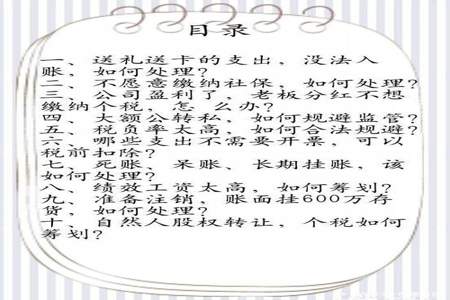 目录
一、送礼送卡的支出，没法入
账，如何处理？
二、不愿意缴纳社保，如何处理？
三、公司盈利了，老板分红不想
缴纳个税，怎 么办？
四、大额公转私，如何规避监管？
五、税负率太高，如何合法规避？
六、哪些支出不需要开票，可以
税前扣除？
七、死账、呆账、长期挂账，该
如何处理？
八、绩效工资太高，如何筹划？
九、准备注销，账面挂600万存
货，如何处理？
十、自然人股权转让，个税如何
筹划？